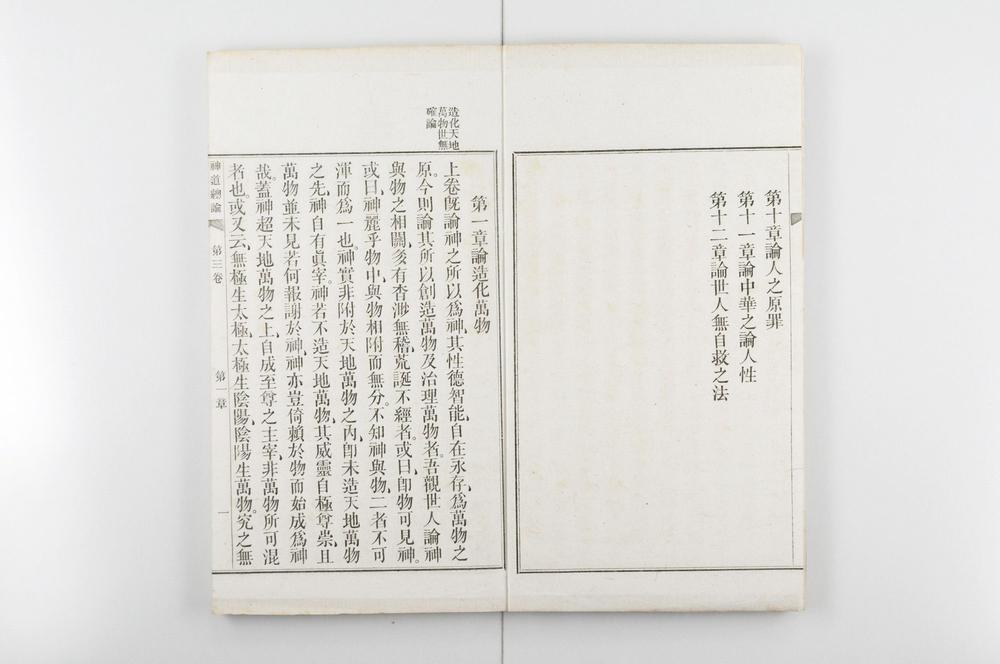 第十章論人之原罪
第十一章論中華之論人性
第十二章論世人無自救之法
造化天地
萬物世無
確論
第一章論造化萬物
上卷旣論神之所以爲神、其性德智能、自在永存、爲萬物之
原。今則論其所以創造萬物及治理萬物者。吾觀世人論神
與物之相關、多有杳渺無稽、荒誕不經者。或曰、卽物可見神。
或曰、神麗乎物中、與物相附而無分。不知神與物、二者不可
渾而爲一也。神實非附於天地萬物之內、卽未造天地萬物
之先、神自有眞宰。神若不造天地萬物、其威靈自極尊崇、且
萬物並未見若何報謝於神、神亦豈倚賴於物而始成爲神
哉。蓋神超天地萬物之上、自成至尊之主宰、非萬物所可混
者也。或又云、無極生太極、太極生陰陽、陰陽生萬物。究之無
神道總論
第三卷
第一章
一